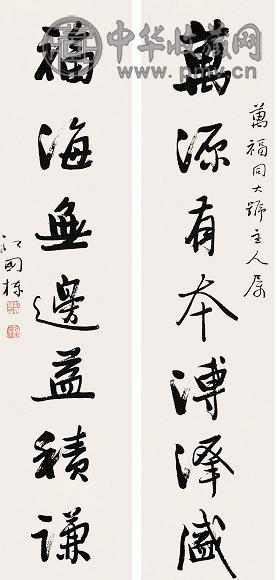 中华收藏网
萬福同大號主人屬
萬源有本溥澤盛
福海無邊益積謙
江國棟